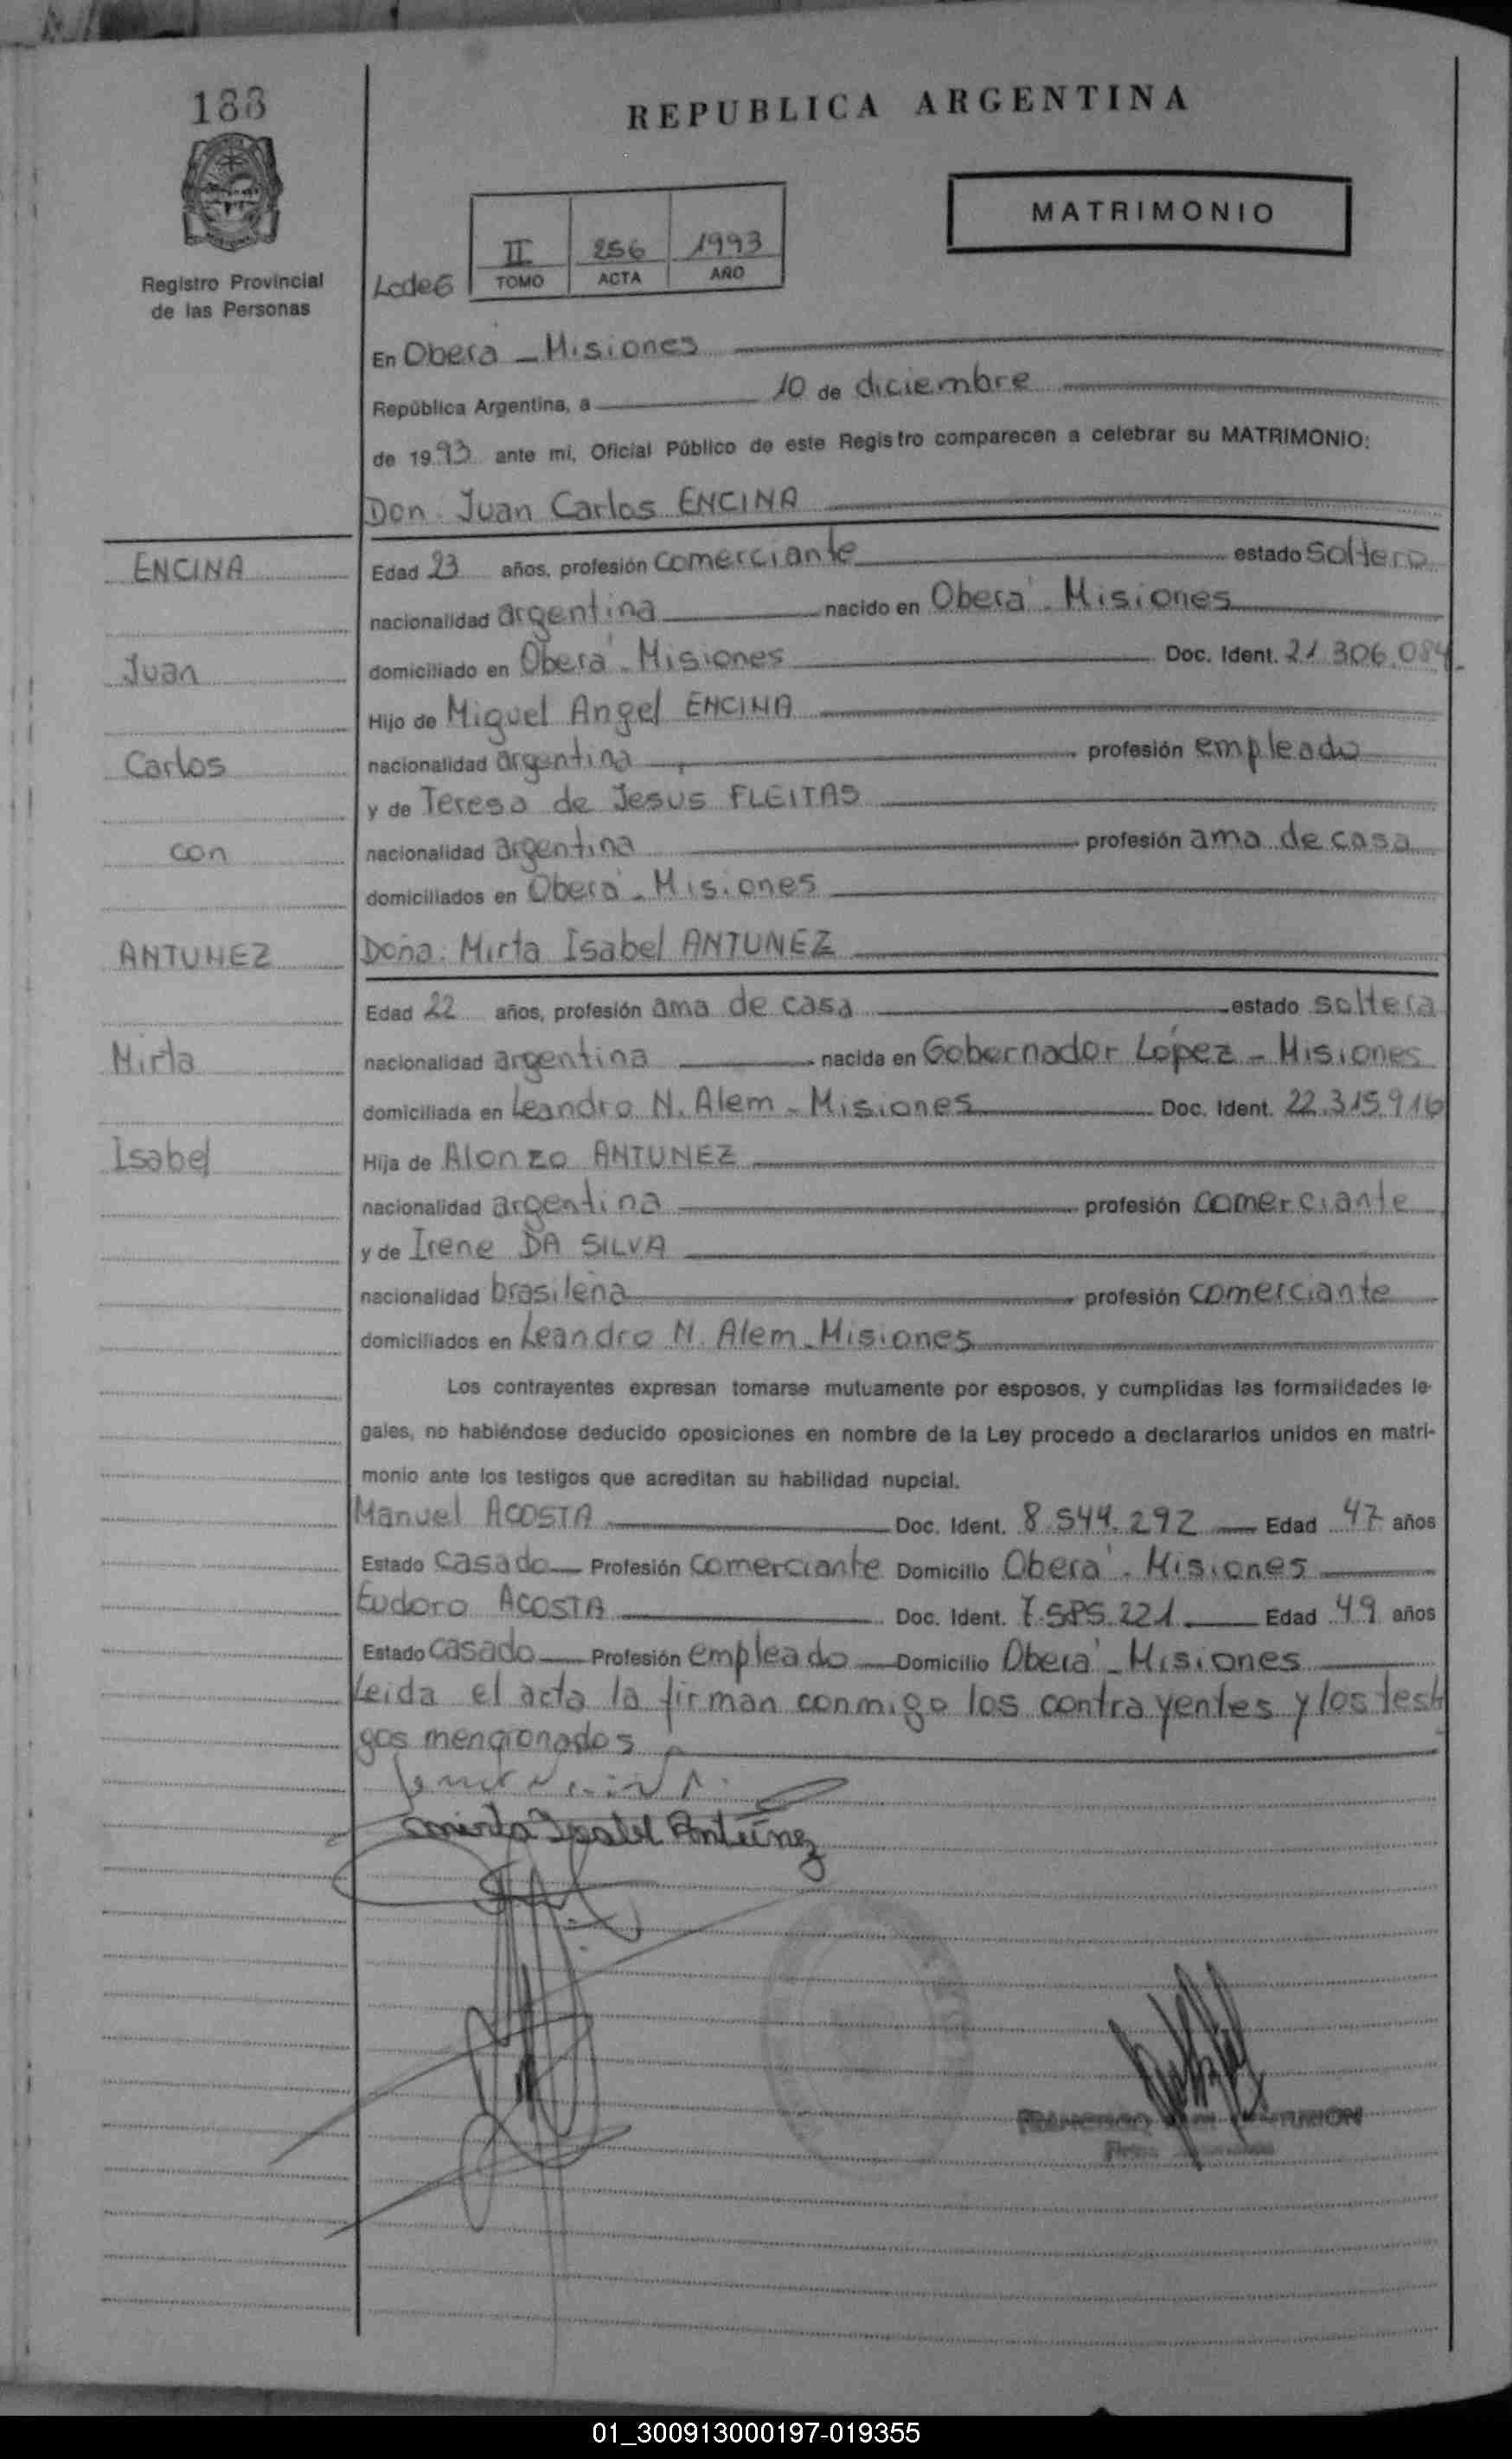 188
REPUBLICA ARGENTINA
MATRIMONIO
II 256 1993
TOMO ACTA AÑO
Registro Provincial
de las Personas
En Oberá - Misiones
República Argentina, a 10 de diciembre
de 1993 ante mi, Oficial Público de este Registro comparecen a celebrar su MATRIMONIO:
Don Juan Carlos ENCINA
ENCINA
Edad 23 años, profesión comerciante estado soltero
nacionalidad argentina nacido en Oberá - Misiones
Juan
domiciliado en Oberá - Misiones Doc. Ident. 21.306.084
Hijo de Miguel Angel ENCINA
Carlos
nacionalidad argentina profesión empleado
y de Teresa de Jesus FLEITAS
con
nacionalidad argentina profesión ama de casa
domiciliados en Oberá - Misiones
ANTUNEZ
Doña: Mirta Isabel ANTUNEZ
Edad 22 años, profesión ama de casa estado soltera
Mirta
nacionalidad argentina nacida en Gobernador López - Misiones
domiciliada en Leandro N. Alem - Misiones Doc. Ident. 22.315.916
Isabel
Hija de Alonzo ANTUNEZ
nacionalidad argentina profesión comerciante
y de Irene DA SILVA
nacionalidad brasileña profesión comerciante
domiciliados en Leandro N. Alem - Misiones
Los contrayentes expresan tomarse mutuamente por esposos, y cumplidas las formalidades le-
gales, no habiéndose deducido oposiciones en nombre de la Ley procedo a declararlos unidos en matri-
monio ante los testigos que acreditan su habilidad nupcial.
Manuel ACOSTA Doc. Ident. 8.544.292 Edad 47 años
Estado casado Profesión comerciante Domicilio Oberá - Misiones
Eudoro ACOSTA Doc. Ident. Edad 49 años
Estado casado Profesión empleado Domicilio Oberá - Misiones
Leida el acta la firman conmigo los contrayentes y los testi
gos mencionados
Mirta Isabel Antúnez
01_300913000197-019355